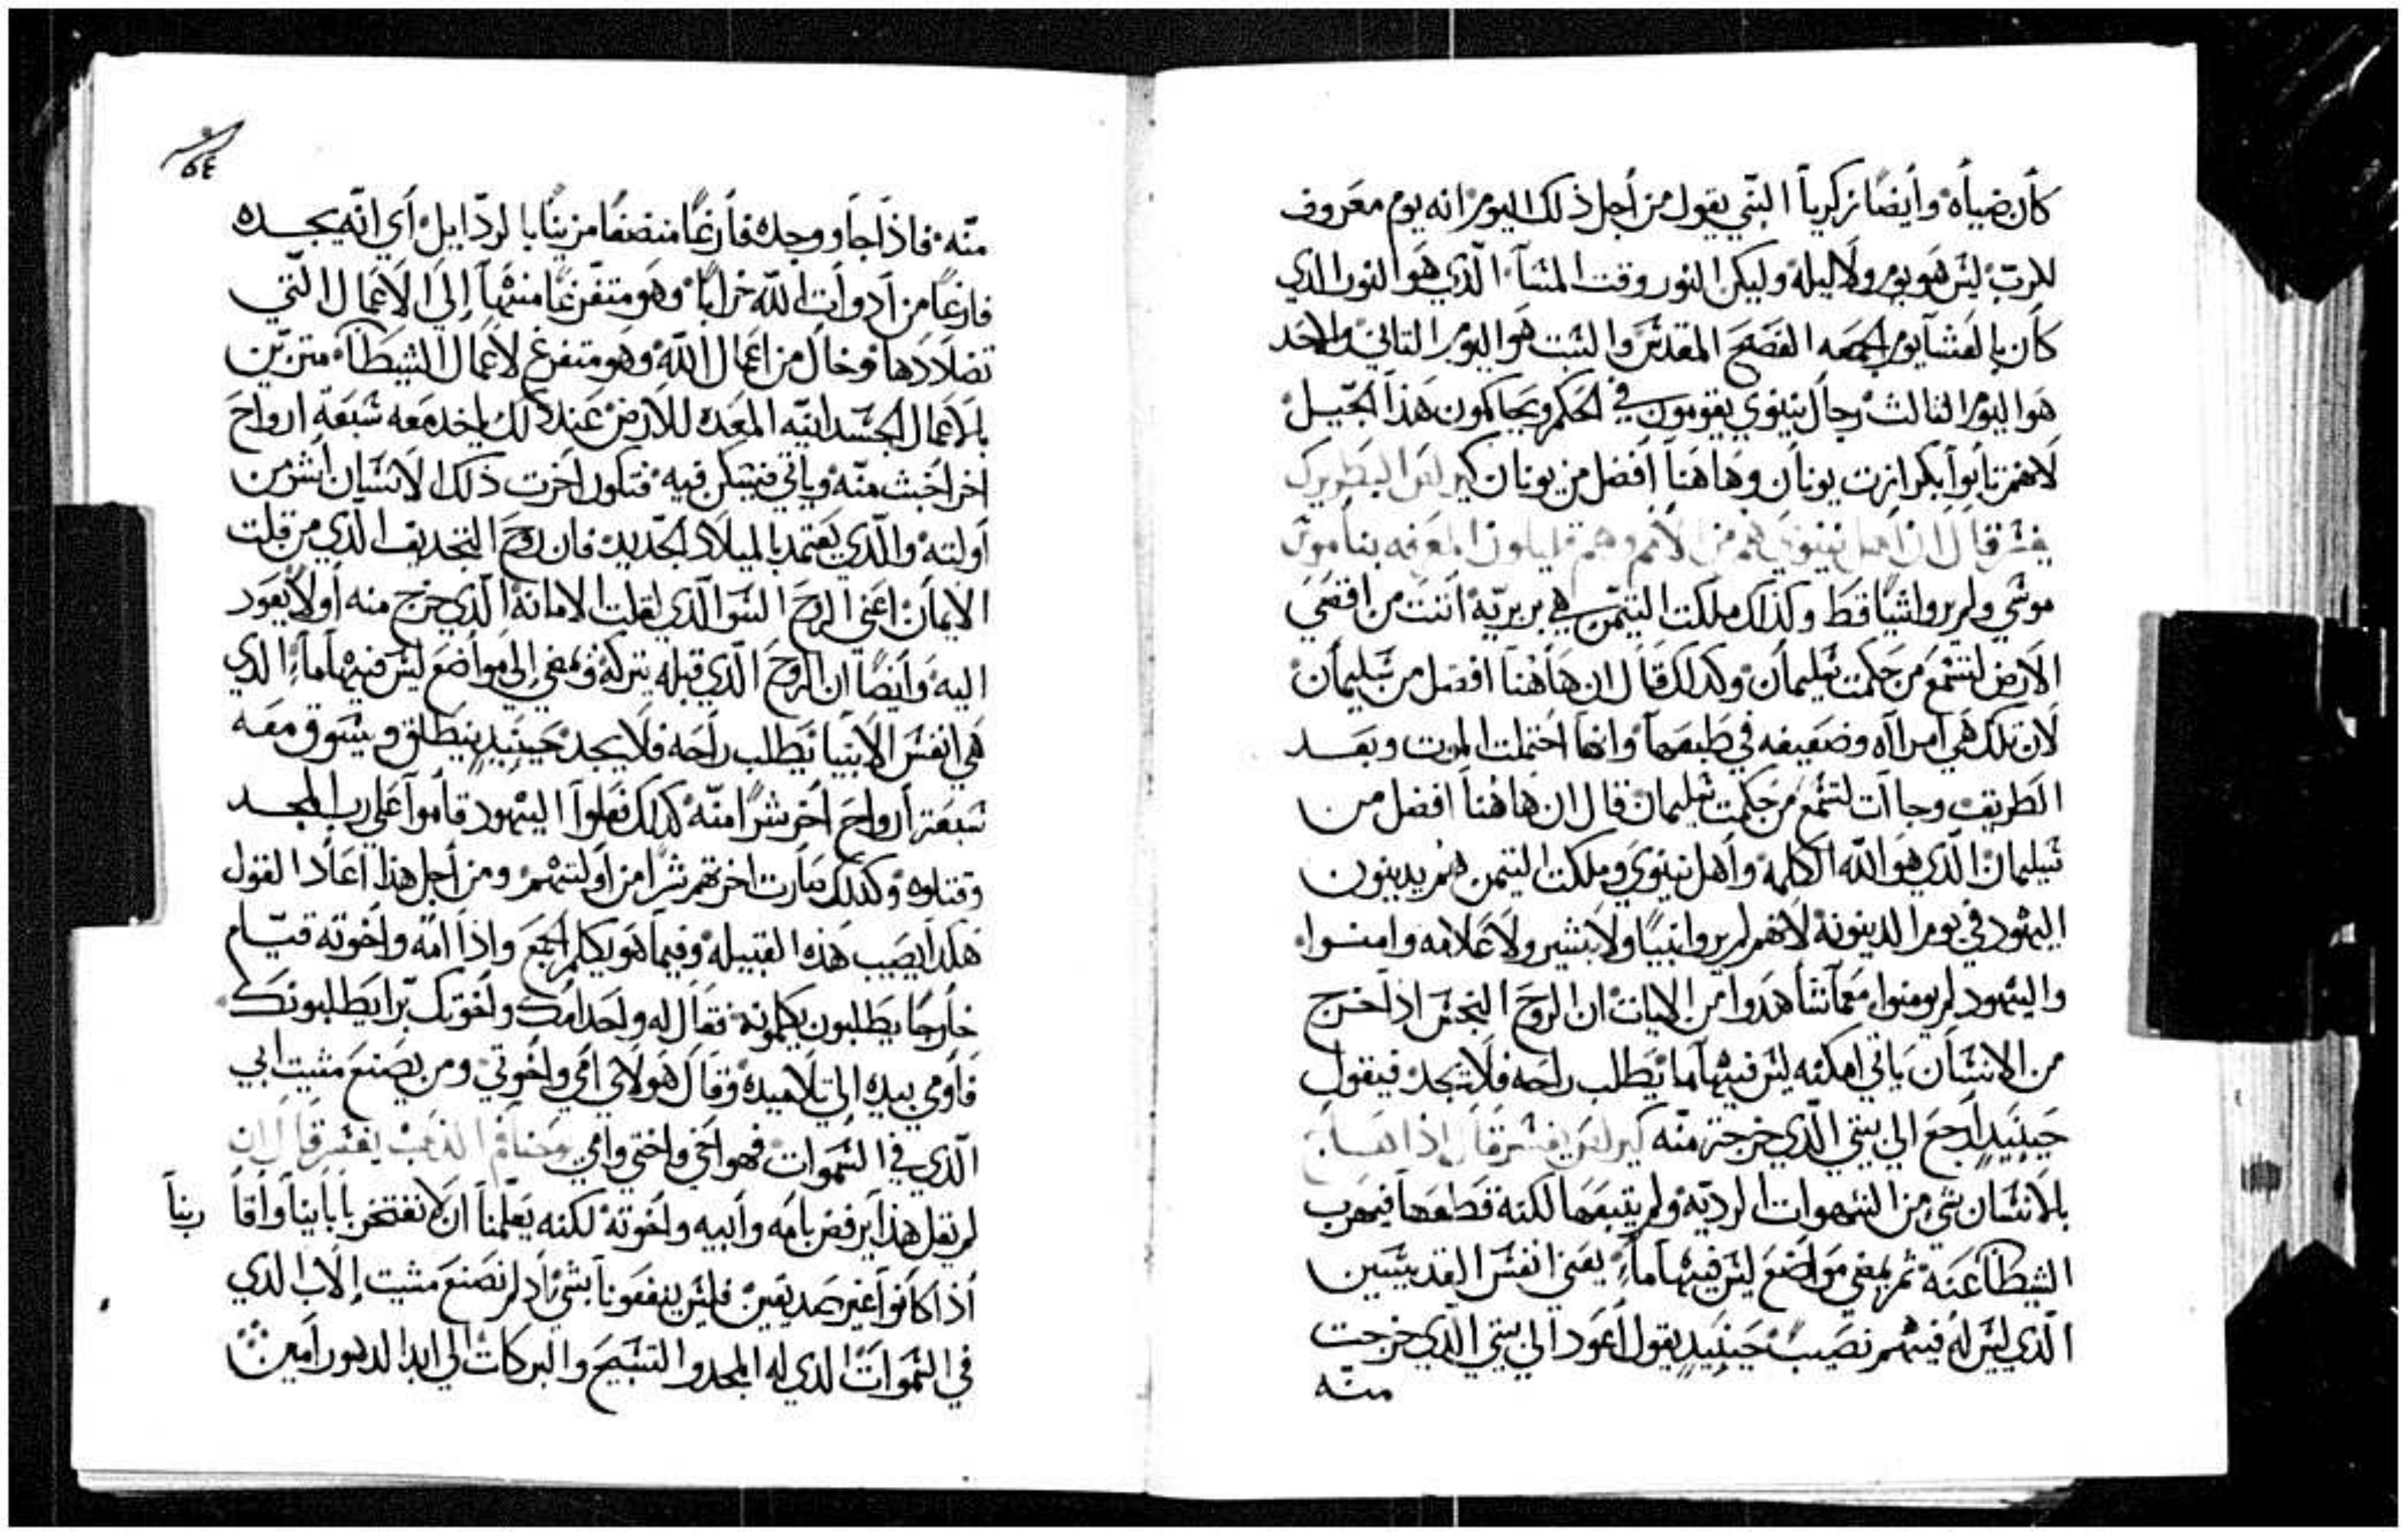 كان ضياه وايضًا زكريا النبي يقول من اجل ذلك اليوم انه يوم معروف
للرب ليس هو يوم ولا ليله وليكن النور وقت المسآ الذي هو النور الذي
كان بالعشا يوم الجمعه الفصح المقدس والسبت هو اليوم التاني والاحد
هو اليوم الثالث رجال نينوي يقومون في الحكم ويحاكمون هذا الجيل
لانهم تابوا بكرازت يونان وهاهنا افضل من يونان كيرلس البطريرك
يفسر قال ان اهل نينوي هم من الامم وهم قليلون المعرفه بناموس
موسي ولم يروا شيًا قط وكذلك ملكت التيمن هي بربريه اتت من اقصي
الارض لتسمع من حكمت سليمان وكذلك قال ان هاهنا افضل من سليمان
لان تلك هي امرااه وضعيفه في طبعها وانها احتملت الموت وبعد
الطريق وجاات لتسمع من حكمت سليمان قال ان هاهنا افضل من
سليمان الذي هو الله الكلمه واهل نينوي وملكت التيمن هم يدينون
اليهود في يوم الدينونه لانهم لم يروا نبيًا ولا بشير ولا علامه وامنوا
واليهود لم يومنوا معما شاهدوا من الايات ان الروح النجس اذا خرج
من الانسان ياتي امكنه ليس فيها ما يطلب راحه فلا يجد فيقول
حينيدٍ ارجع الي بيتي الذي خرجت منه كيرلس يفسر قال اذا
بالانسان شي من الشهوات الرديه ولم يتبعها لكنه قطعها فيهرب
الشيطان عنه ثم يمضي مواضع ليس فيها ماءٍ يعني انفس القديسين
الذي ليس له فيهم نصيب حينيدٍ يقول اعود الي بيتي الذي خرجت
منه
٥٤
منه فاذا جا ووجده فارغًا منضفًا مزينًا بالردايل اي انه يجده
فارغًا من ادوات الله خرابًا وهو متفرغًا منتهيا إلي الاعمال التي
تضاددها وخال من اعمال الله وهو متفرغ لاعمال الشيطان متزين
بالاعمال الجسدانيه المعده للارض عند ذلك ياخد معه سبعة ارواح
اخر اخبث منه وياتي فيسكن فيه فتكون اخرت ذلك الانسان اشر من
اولته والذي يعتمد بالميلاد الجديد فان روح التجديف الذي من قلت
الايمان اعني الروح السو الذي لقلت الامانه الذي خرج منه اولًا يعود
اليه وايضًا ان الروح الذي قبله يتركه ويمضي إلي مواضع ليس فيها ماءٍ الذي
هي انفس الانبيا يطلب راحه فلا يجد حينيدٍ ينطلق ويسوق معه
سبعة ارواح اخر شرًا منه كذلك فعلوا اليهود قاموا علي رب المجد
وقتلوه وكذلك صارت اخرتهم شرًا من اولتهم ومن اجل هذا اعاد القول
هكذا يصيب هذه القبيله وفيما هو يكلم الجمع واذا امه واخوته قيام
خارجًا يطلبون يكلمونه فقال له واحد امك واخوتك برا يطلبونك
فاومي بيده الي تلاميده وقال هولاي امي واخوتي ومن يصنع مشيت ابي
الذي في السموات فهو اخي واختي وامي يوحنا فم الذهب يفسر قال ان
ربنا
لم تقل هذا يرفض بامه وابيه واخوته لكنه يعلمنا ان لا نفتخر باباينا واقاربنا
اذا كانوا غير صديقين فليس ينفعونا بشي اد لم نصنع مشيت إلاب الذي
في السموات الذي له المجد والتسبيح والبركات الي ابد الدهور امين